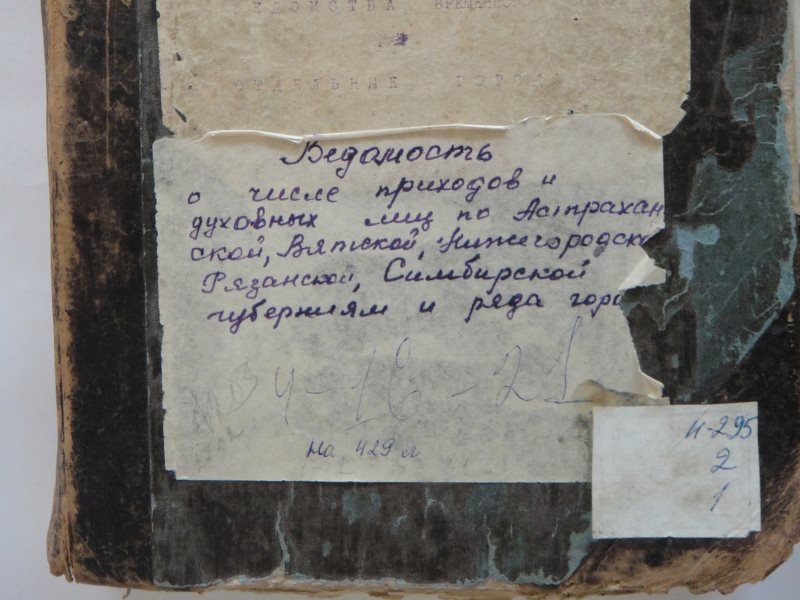 ВЕДОМСТВА
ОТДЕЛЬНИЕ
Ведомость
о числе приходов и
духовных лиц по Астрахан
ской, Вятской, Нижегородск
Рязанской, Симбирской
губерниям и ряда горо
4-16-21
На 429 л
И-295
2
1